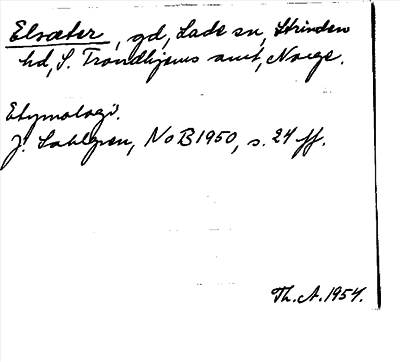 Elsæter, gd, Lade sn, Strinden
hd, S. Trondhjems amt, Norge.
Etymologi.
J. Sahlgren, NoB 1950, s. 24 ff.
Th. A. 1954.